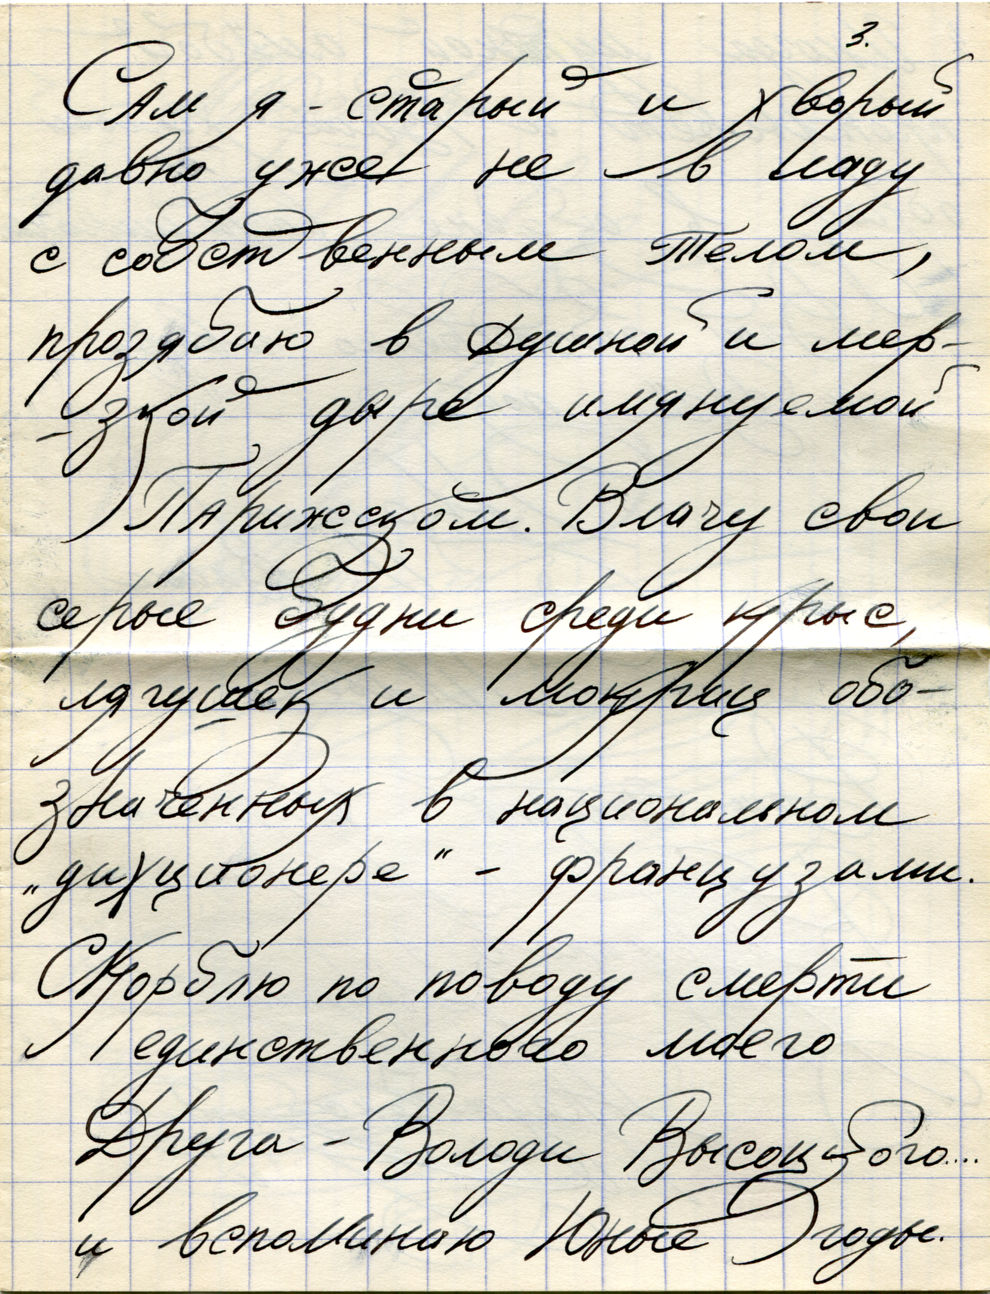 3.
Сам я - старый и хворый
давно уже не в ладу
с собственным телом,
прозябаю в душной и мер-
-зкой дыре имянуемой
Парижском. Влачу свои
серые будни среди крыс,
лягушек и мокриц обо-
значенных в национальном
„дикционере" - французами.
Скорблю по поводу смерти
единственного моего
Друга - Володи Высоцкого....
и вспоминаю Юные годы.